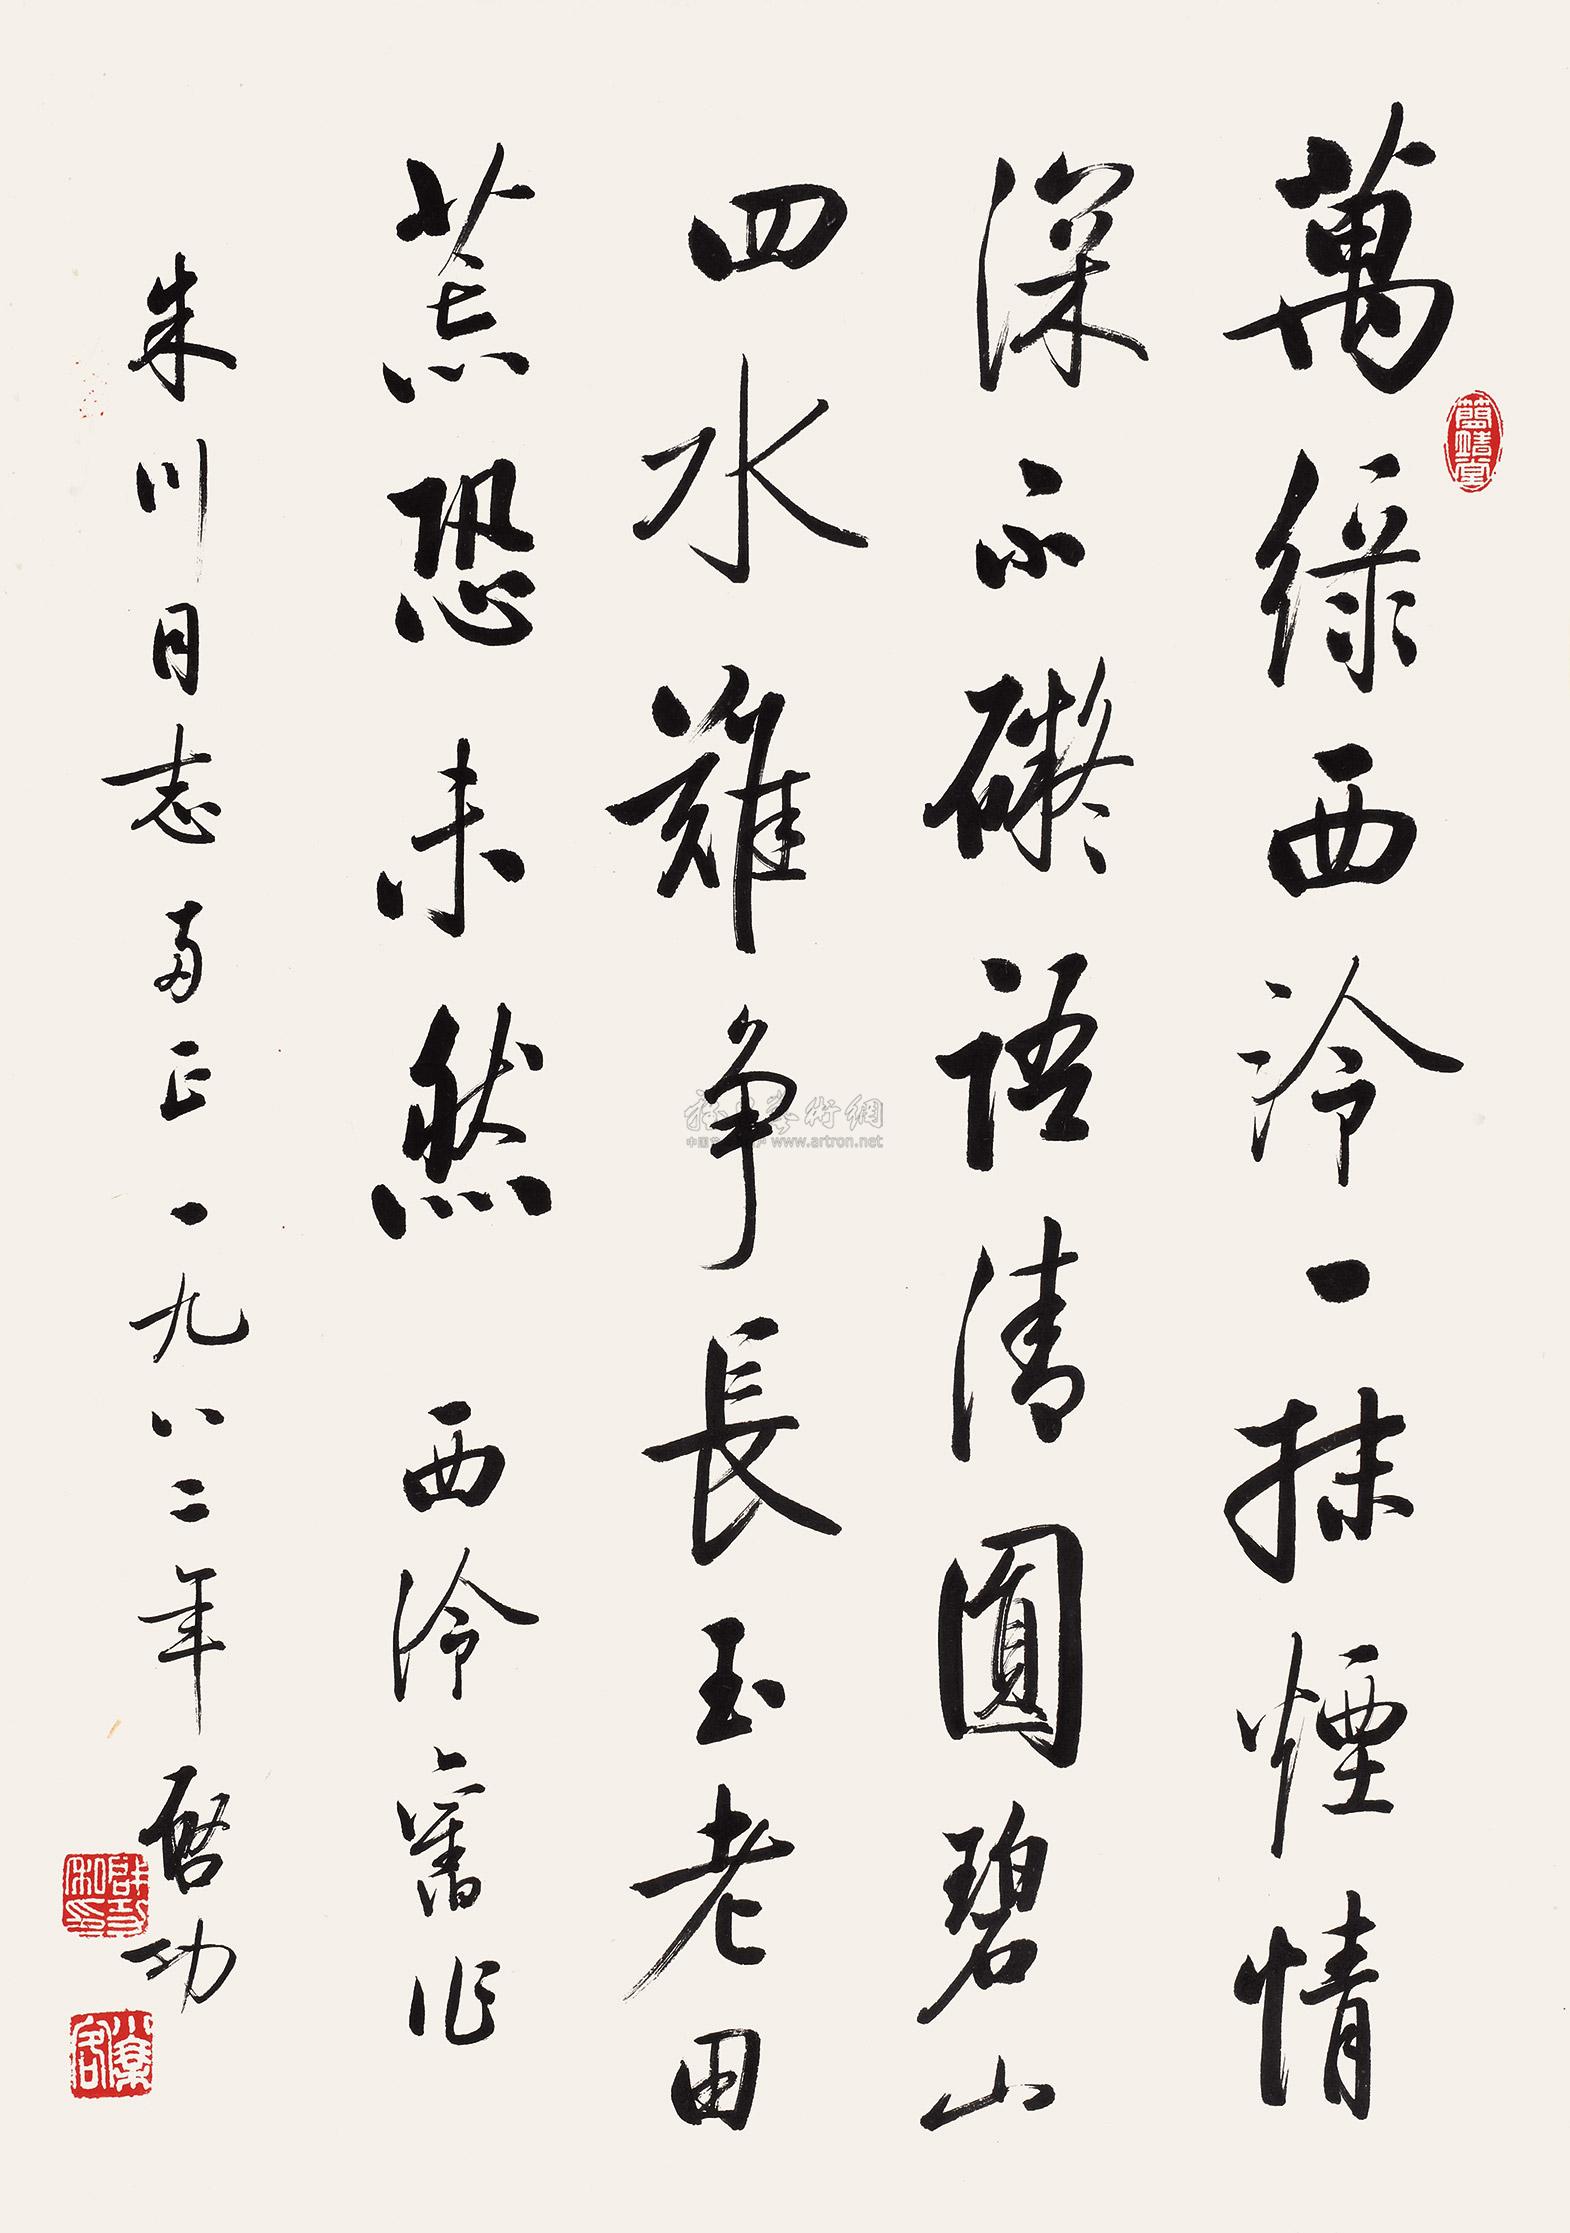 萬綠西泠一抹煙情
深不礙語清圓碧山
四水難争長玉老田
荒恐未然 西泠舊作
朱川同志正 一九八二年 啓功
簡靖堂
啟功私印
www.artron.net